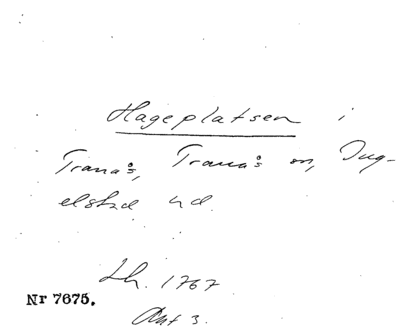 Hageplatsen i
Tranås, Tranås sn, Ing-
elstad hd.
Lh. 1767
Akt 3.
Nr 7675.